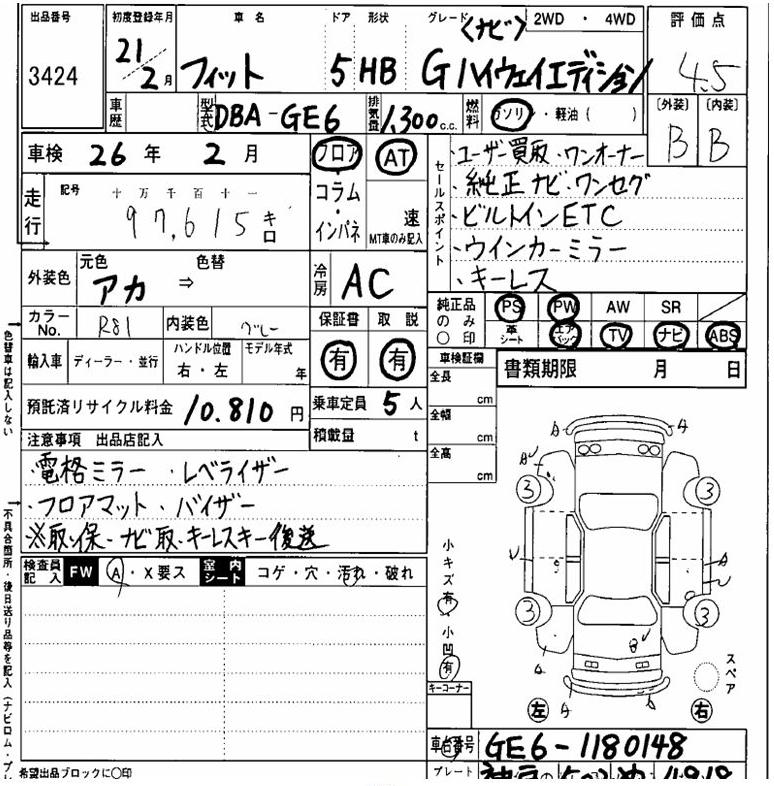 出品番号 初度登録年月 車名 ドア 形状 グレード 〈ナビ〉 2WD ・ 4WD 評価点
3424 21年 2月 フィット 5 HB G ハイウェイエディション 4.5
車歴 型式 DBA-GE6 排気量 1,300 c.c. 燃料 ガソリン・軽油 ( ) 〔外装〕 〔内装〕
B B
車検 26年 2月 フロア AT セールスポイント ・ユーザー買取・ワンオーナー
走行 記号 十万千百十一 コラム ・純正ナビ・ワンセグ
97,615 キロ ・インパネ 速 ・ビルトインETC
MT車のみ記入 ・ウインカーミラー
外装色 元色 色替 冷房 AC ・キーレス
アカ ⇒
純正品のみ〇印 PS PW AW SR
カラーNo. R81 内装色 グレー 保証書 取説 革シート エアバック TV ナビ ABS
輸入車 ディーラー・並行 ハンドル位置 右・左 モデル年式 年 有 有
車検証欄 書類期限 月 日
全長 cm
全幅 cm
全高 cm
預託済リサイクル料金 10.810 円 乗車定員 5 人
積載量 t
注意事項 出品店記入
・電格ミラー ・レベライザー
・フロアマット ・バイザー
※取・保・ナビ取・キーレスキー後送
検査員記入 FW A・X要ス 室内シート コゲ・穴・汚れ・破れ
小キズ有・小凹有
キーコーナー
A A
3 3
3 3
スペア
左 右
車台番号 GE6-1180148
プレート
色替車は記入しない
不具合箇所・後日送り品等を記入(ナビロム・プレ
希望出品ブロックに〇印